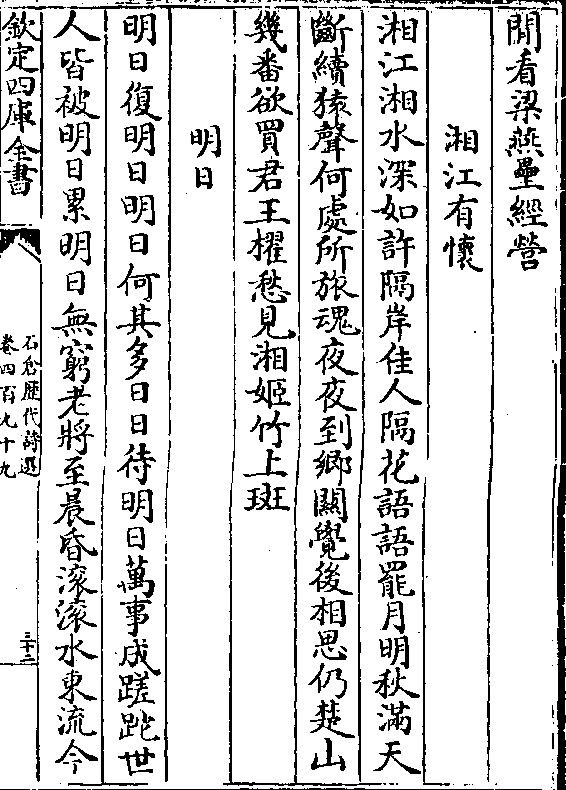 閒看梁燕壘經營
湘江有懷
湘江湘水深如許隔岸佳人隔花語語罷月明秋滿天
斷續猿聲何處所旅魂夜夜到鄉關覺後相思仍楚山
幾番欲買君王櫂愁見湘姬竹上斑
明日
明日復明日明日何其多日日待明日萬事成蹉跎世
人皆被明日累明日無窮老將至晨昏滚滚水東流今
欽定四庫全書
石倉歷代詩選
卷四百九十九
三十二